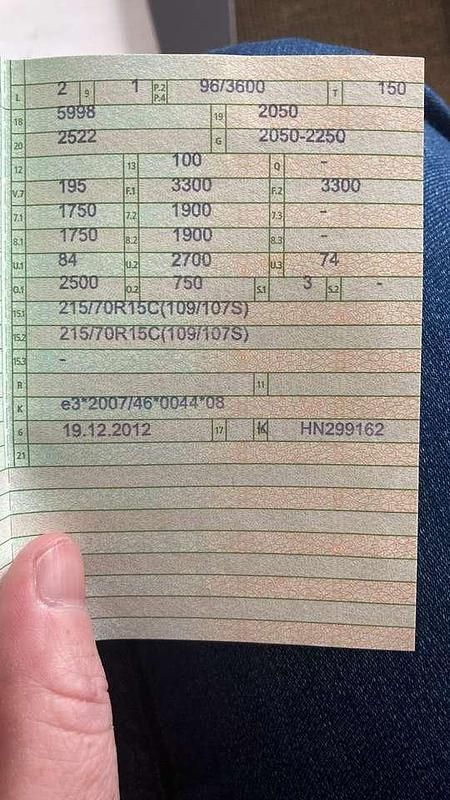 L 2 9 1 P.2 P.4 96/3600 T 150
18 5998 19 2050
20 2522 G 2050-2250
12 13 100 Q -
V.7 195 F.1 3300 F.2 3300
7.1 1750 7.2 1900 7.3 -
8.1 1750 8.2 1900 8.3 -
U.1 84 U.2 2700 U.3 74
O.1 2500 O.2 750 S.1 3 S.2 -
15.1 215/70R15C(109/107S)
15.2 215/70R15C(109/107S)
15.3 -
R 11
K e3*2007/46*0044*08
6 19.12.2012 17 K HN299162
21